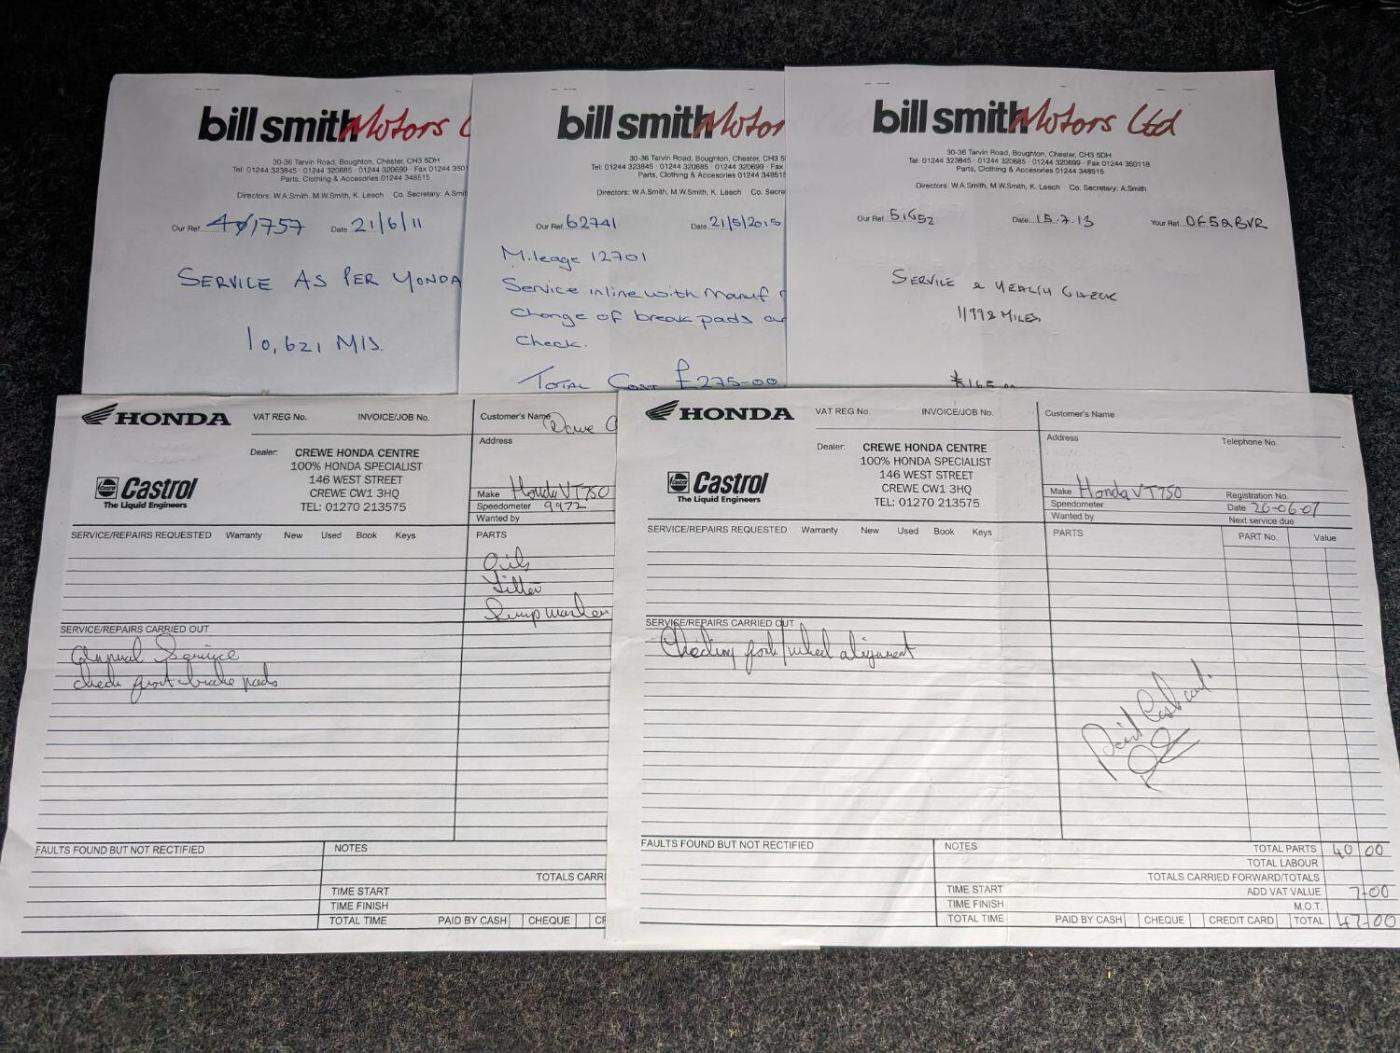 bill smith Motors
30-36 Tarvin Road, Boughton, Chester, CH3 5DH
Tel: 01244 323845 · 01244 320685 · 01244 320699 · Fax 01244 350
Parts, Clothing & Accesories 01244 348515
Directors: W.A.Smith, M.W.Smith, K. Leech Co. Secretary: A.Smit
Our Ref. 1757 Date 21/6/11
SERVICE AS PER HONDA
10,621 MIS.
bill smith Motor
30-36 Tarvin Road, Boughton, Chester, CH3 5
Tel: 01244 323845 · 01244 320685 · 01244 320699 · Fax
Parts, Clothing & Accesories 01244 34851
Directors: W.A.Smith, M.W.Smith, K. Leech Co. Secre
Our Ref. 62741 Date. 21/5/2015
Mileage 12701
Service inline with Manuf
Change of break pads
Check.
TOTAL COST £275-00
bill smith Motors Ltd
30-36 Tarvin Road, Boughton, Chester, CH3 5DH
Tel: 01244 323845 · 01244 320685 · 01244 320699 · Fax 01244 350118
Parts, Clothing & Accesories 01244 348515
Directors: W.A.Smith, M.W.Smith, K. Leech Co. Secretary: A.Smith
Our Ref. 51652 Date. 15.7.13 Your Ref. DF52BVR
SERVICE & HEALTH CHECK
11992 MILES
HONDA VAT REG No. INVOICE/JOB No. Customer's Name Dave
Address
Dealer: CREWE HONDA CENTRE
100% HONDA SPECIALIST
146 WEST STREET
CREWE CW1 3HQ
TEL: 01270 213575
Castrol
The Liquid Engineers
Make Honda VT750
Speedometer 9972
Wanted by
SERVICE/REPAIRS REQUESTED Warranty New Used Book Keys PARTS
Oils
Filter
Sump washer
SERVICE/REPAIRS CARRIED OUT
General Service
check front brake pads
FAULTS FOUND BUT NOT RECTIFIED NOTES
TOTALS CARR
TIME START
TIME FINISH
TOTAL TIME PAID BY CASH CHEQUE CR
HONDA VAT REG No. INVOICE/JOB No. Customer's Name
Address Telephone No.
Dealer: CREWE HONDA CENTRE
100% HONDA SPECIALIST
146 WEST STREET
CREWE CW1 3HQ
TEL: 01270 213575
Castrol
The Liquid Engineers
Make Honda VT750 Registration No.
Speedometer Date 26-06-07
Wanted by Next service due
SERVICE/REPAIRS REQUESTED Warranty New Used Book Keys PARTS PART No. Value
SERVICE/REPAIRS CARRIED OUT
Checking fork/wheel alignment
Paid
FAULTS FOUND BUT NOT RECTIFIED NOTES TOTAL PARTS 40 00
TOTAL LABOUR
TOTALS CARRIED FORWARD/TOTALS
TIME START ADD VAT VALUE 7-00
TIME FINISH M.O.T.
TOTAL TIME PAID BY CASH CHEQUE CREDIT CARD TOTAL 47-00